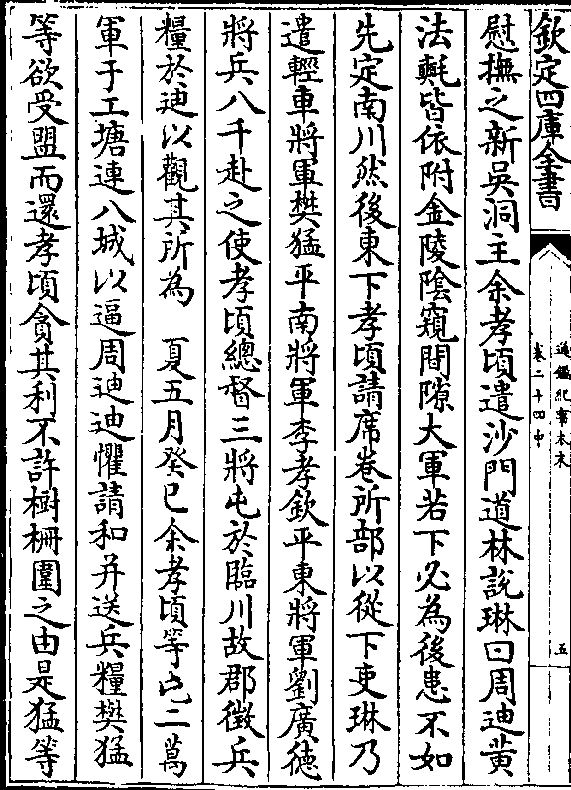 欽定四庫全書
通鑑紀事本末
卷二十四中
五
慰撫之新吳洞主余孝頃遣沙門道林說琳曰周迪黄
法𣰋皆依附金陵陰窺間隙大軍若下必為後患不如
先定南川然後東下孝頃請席卷所部以從下吏琳乃
遣輕車將軍樊猛平南將軍李孝欽平東將軍劉廣徳
將兵八千赴之使孝頃總督三將屯於臨川故郡徵兵
糧於迪以觀其所為　夏五月癸巳余孝頃等屯二萬
軍于工塘連八城以逼周迪迪懼請和并送兵糧樊猛
等欲受盟而還孝頃貪其利不許樹柵圍之由是猛等